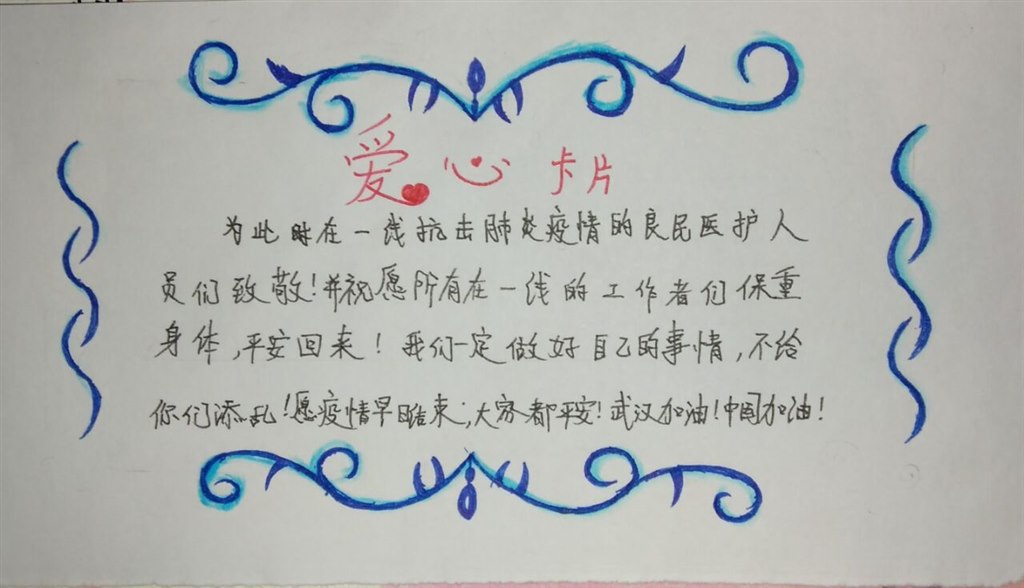 爱心卡片
为此时在一线抗击肺炎疫情的良民医护人
员们致敬!并祝愿所有在一线的工作者们保重
身体,平安回来!我们一定做好自己的事情,不给
你们添乱!愿疫情早结束;大家都平安!武汉加油!中国加油!